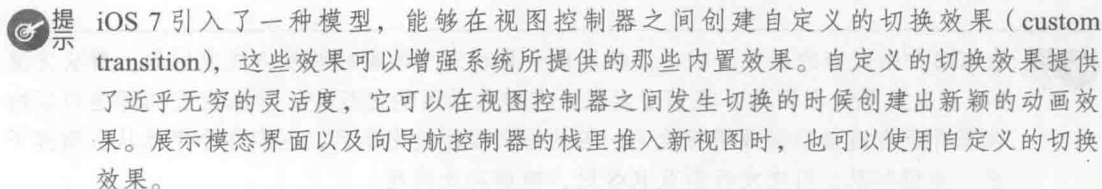 提示 iOS 7 引入了一种模型，能够在视图控制器之间创建自定义的切换效果（custom
transition），这些效果可以增强系统所提供的那些内置效果。自定义的切换效果提供
了近乎无穷的灵活度，它可以在视图控制器之间发生切换的时候创建出新颖的动画效
果。展示模态界面以及向导航控制器的栈里推入新视图时，也可以使用自定义的切换
效果。